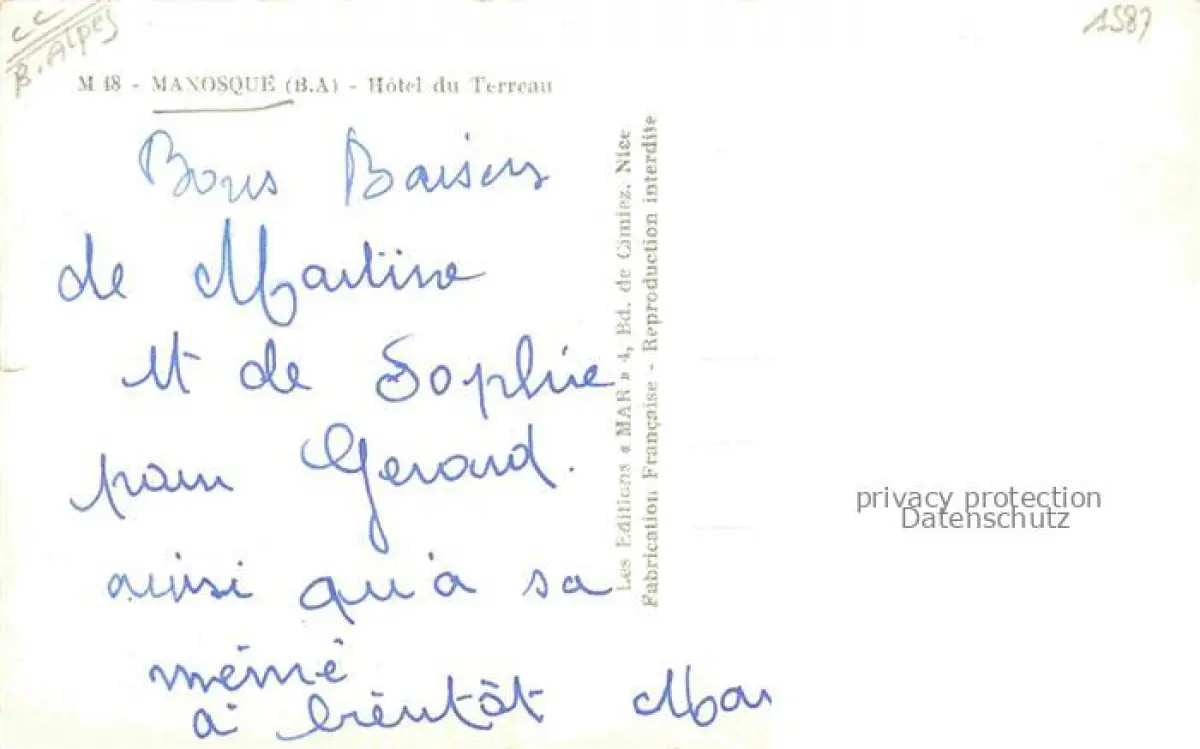 CC
B. Alpes
1587
M 48 - MANOSQUE (B.A) - Hôtel du Terreau
Bons Baisers
de Martine
et de Sophie
pour Gerard.
ainsi qu'à sa
mémé
à bientôt Mar
Les Editions « MAR » 4, Bd. de Cimiez. Nice
Fabrication Française - Reproduction interdite
privacy protection
Datenschutz